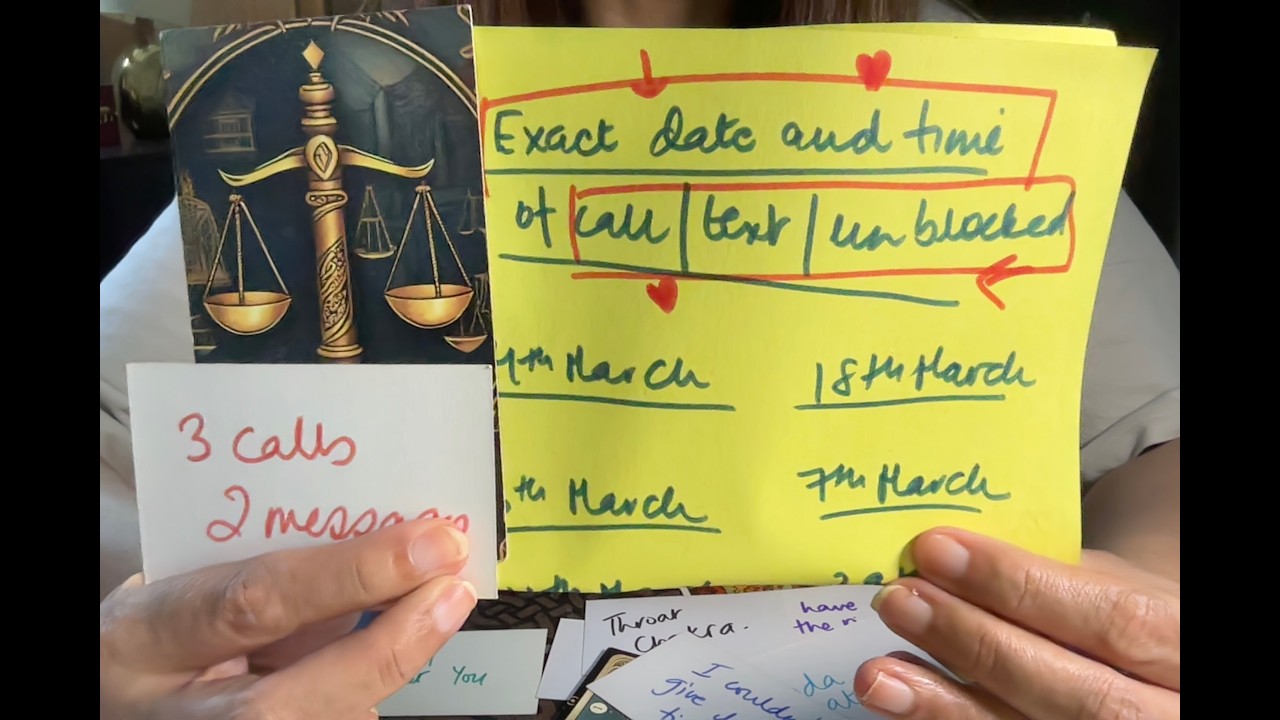 Exact date and time
of call | text | unblocked
th March 18th March
th March 7th March
3 calls
2 messages
Throat
Chakra.
have
the
You
I couldn
give